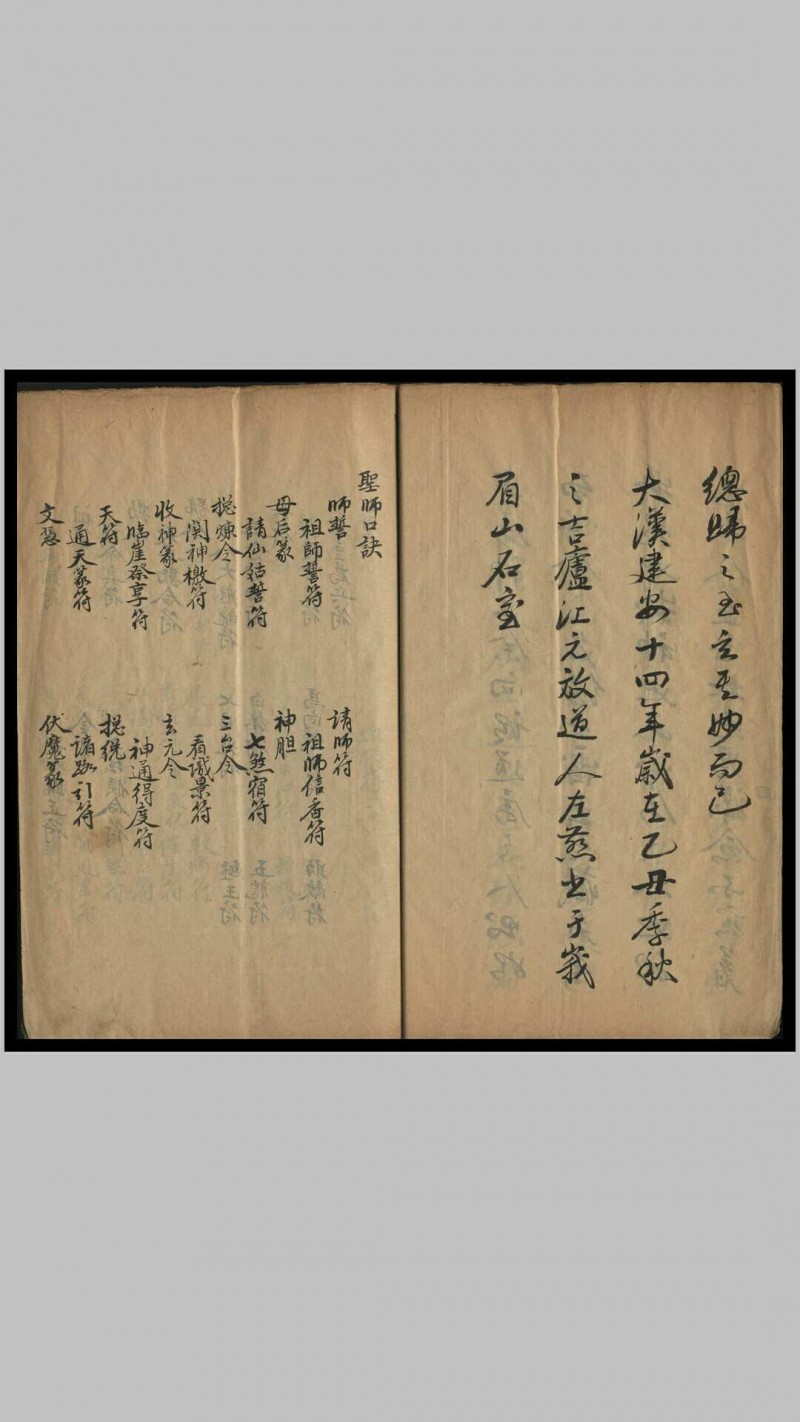 總歸之玄玄至妙而已
大漢建安十四年歲在乙丑季秋
之吉廬江元放道人左慈書于峩
眉山石室
聖師口訣
師誓 請師符
祖師誓符 祖師信香符
母后篆 神胆
請仙姑誓符 七煞宿符
捴煉令 三台令
関神檄符 看諴景符
收神篆 玄元令
臨崖祭享符 神通得度符
天符 捴統
通天篆符 諸路引符
文 伏魔篆